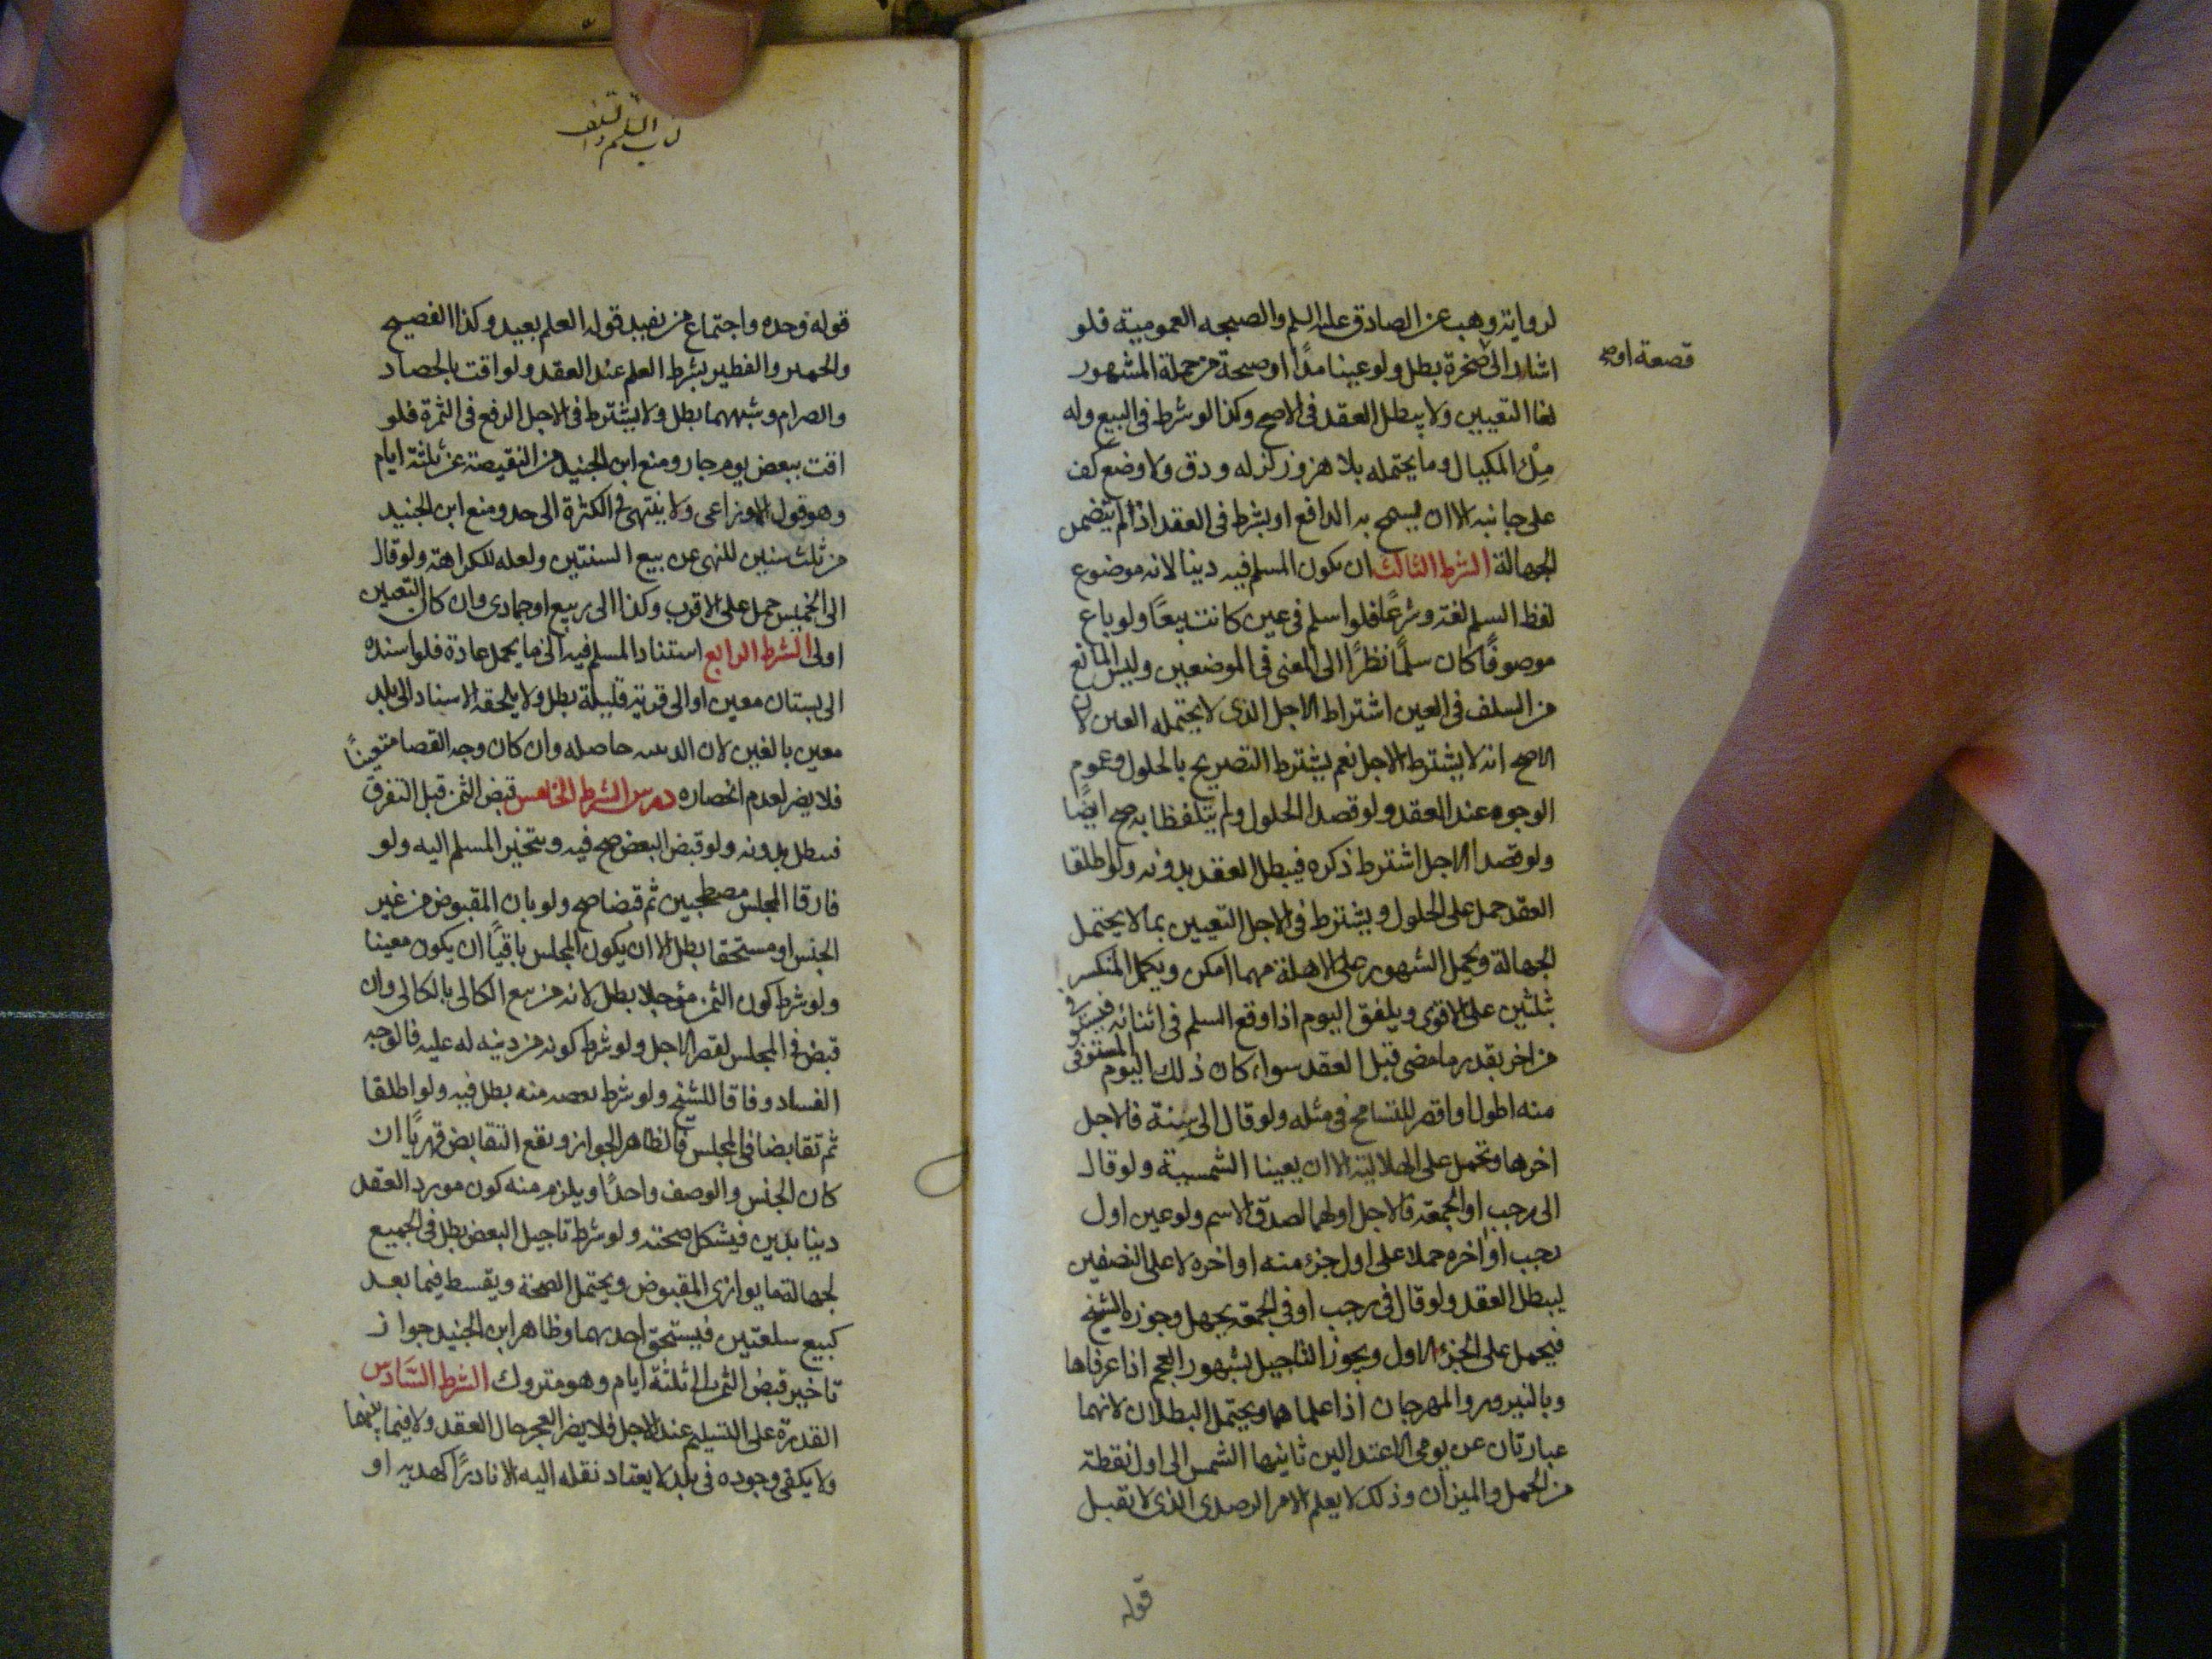 لرواية وهب عن الصادق عليه السلم والصبحه العمومية فلو
قصعة او
اشار الى صخرة بطل ولو عينا مدًا او صبحة من جملة المشهور
لغا التعيين ولا يبطل العقد فى الاصح وكذا لو شرط فى البيع وله
ملء المكيال وما يحتمله بلا هز وزلزلة ودق ولا وضع كف
على جانبه الا ان يسمح به الدافع او يشرط فى العقد اذا لم يتضمن
الجهالة الشرط الثالث ان يكون المسلم فيه دينا لانه موضوع
لفظ السلم لغة وشرعًا فلو اسلم فى عين كانت بيعًا ولو باع
موصوفًا كان سلمًا نظرًا الى المعنى فى الموضعين وليس المانع
من السلف فى العين اشتراط الاجل الذى لا يحتمله العين لان
الاصح انه لا يشترط الاجل نعم يشترط التصريح بالحلول وعموم
الوجود عند العقد ولو قصدا الحلول ولم يتلفظا به صح ايضًا
ولو قصدا الاجل اشترط ذكره فيبطل العقد بدونه ولو اطلقا
العقد حمل على الحلول ويشترط فى الاجل التعيين بما لا يحتمل
الجهالة ويحمل الشهور على الاهلة مهما امكن ويكمل المنكسر
ثلثين على الاقوى ويلفق اليوم اذا وقع السلم فى اثنائه فيستوفى
من اخر بقدر ما مضى قبل العقد سواء كان ذلك اليوم المستوفى
منه اطول او اقصر للتسامح فى مثله ولو قال الى سنة فالاجل
اخرها وتحمل على الهلالية الا ان يعينا الشمسية ولو قال
الى رجب او الجمعة فالاجل اولهما لصدق الاسم ولو عين اول
رجب او اخره حملا على اول جزء منه او اخره لا على النصفين
ليبطل العقد ولو قال فى رجب او فى الجمعة يجهل وجوزه الشيخ
فيحمل على الجزء الاول ويجوز التاجيل بشهور العجم اذا عرفاها
وبالنيروز والمهرجان اذا علماهما ويحتمل البطلان لانهما
عبارتان عن يومى الاعتدالين ثانيها الشمس الى اول نقطة
من الحمل والميزان وذلك لا يعلم الا من الرصدى الذى لا تقبل
قوله
السلم والسلف
قوله وحده واجتماع من يفيد قوله العلم بعيد وكذا الفصيح
والحمير والفطير بشرط العلم عند العقد ولو اقت بالحصاد
والصرام وشبههما بطل ولا يشترط فى الاجل الرفع فى الثمرة فلو
اقت ببعض يوم جاز ومنع ابن الجنيد من النقيصة عن ثلثة ايام
وهو قول الاوزاعى ولا ينتهى فى الكثرة الى حد ومنع ابن الجنيد
من ثلث سنين للنهى عن بيع السنتين ولعله للكراهة ولو قال
الى الخميس حمل على الاقرب وكذا الى ربيع او جمادى وان كان التعيين
اولى الشرط الرابع استناد المسلم فيه الى ما يحمل عادة فلو اسنده
الى بستان معين او الى قرية قليلة بطل ولا يلحقه الاسناد الى بلد
معين بالغبن لان حاصله وان كان وجه القضا متعينًا
فلا يضر لعدم انحصاره درس الشرط الخامس قبض الثمن قبل التفرق
فيبطل بدونه ولو قبض البعض صح فيه ويتخير المسلم اليه ولو
فارقا المجلس مصطحبين ثم قبضا صح ولو بان المقبوض من غير
الجنس او مستحقا بطل الا ان يكون المجلس باقيًا ان يكون معينا
ولو شرط كون الثمن مؤجلا بطل لانه من بيع الكالى بالكالى وان
قبض فى المجلس لقصر الاجل ولو شرط كونه من دينه له عليه فالوجه
الفساد وفاقا للشيخ ولو شرط بعضه منه بطل فيه ولو اطلقا
ثم تقابضا فى المجلس فالظاهر الجواز ويقع التقابض قهريًا ان
كان الجنس والوصف واحدًا ويلزم منه كون مورد العقد
دينا بدين فيشكل صحته ولو شرط تاجيل البعض بطل فى الجميع
لجهالة ما يوازى المقبوض ويحتمل الصحة ويقسط فيما بعد
كبيع سلعتين فيستحق احديهما وظاهر ابن الجنيد جواز
تاخير قبض الثمن الى ثلثة ايام وهو متروك الشرط السادس
القدرة على التسليم عند الاجل فلا يضر العجز حال العقد ولا فيما بينهما
ولا يكفى وجوده فى بلد لا يعتاد نقله اليه الا نادرًا كهدية او